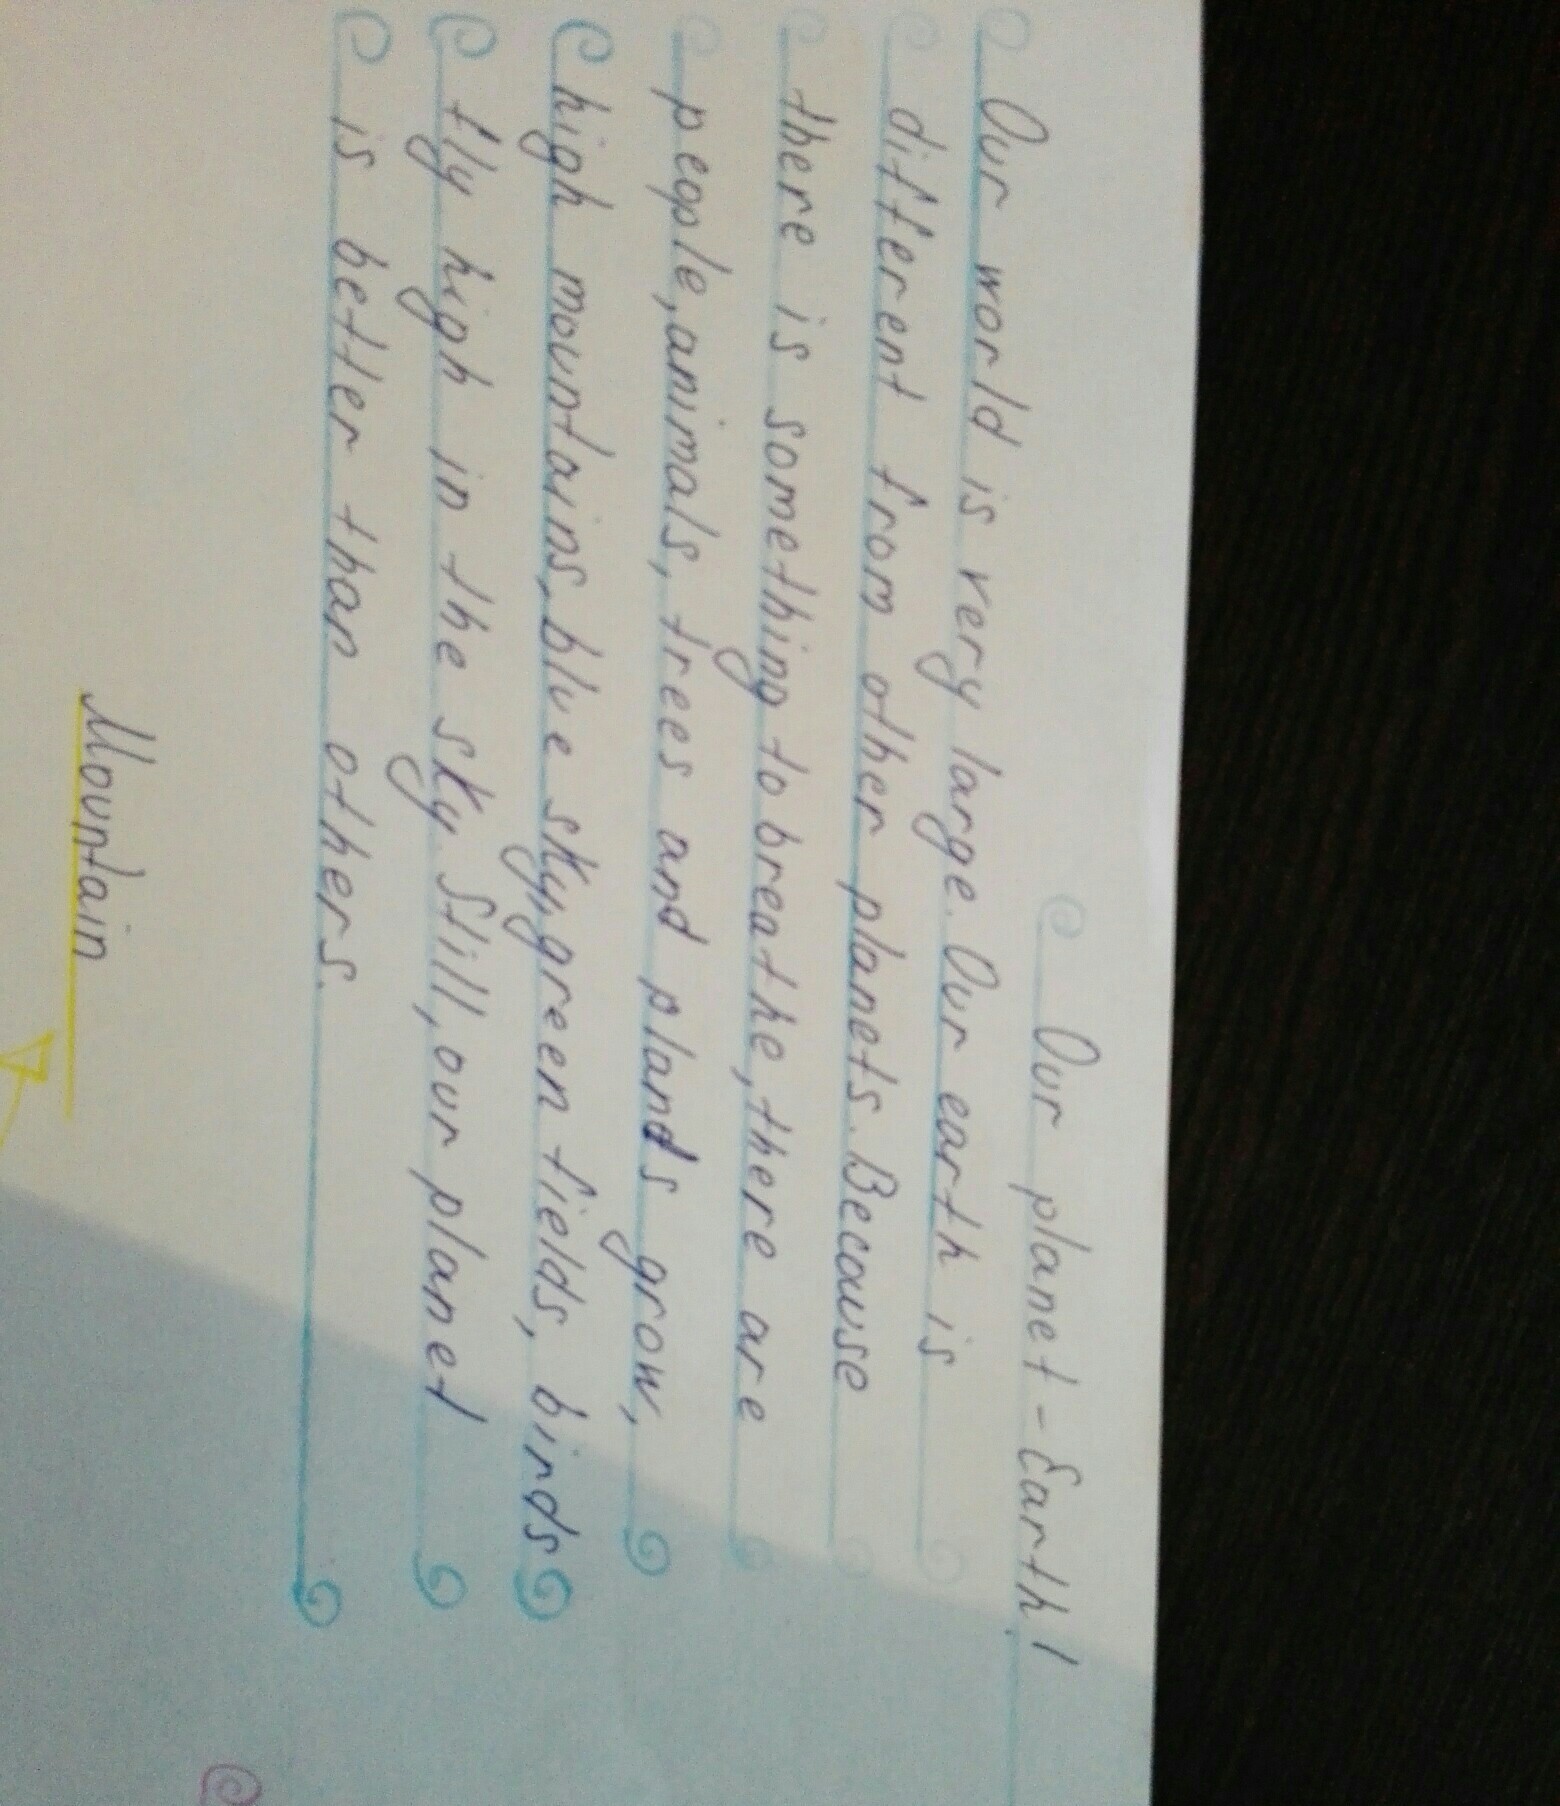 Our planet - Earth!
Our world is very large. Our earth is
different from other planets. Because
there is something to breathe, there are
people, animals, trees and plands grow,
high mountains, blue sky, green fields, birds
fly high in the sky. Still, our planet
is better than others.
Mountain